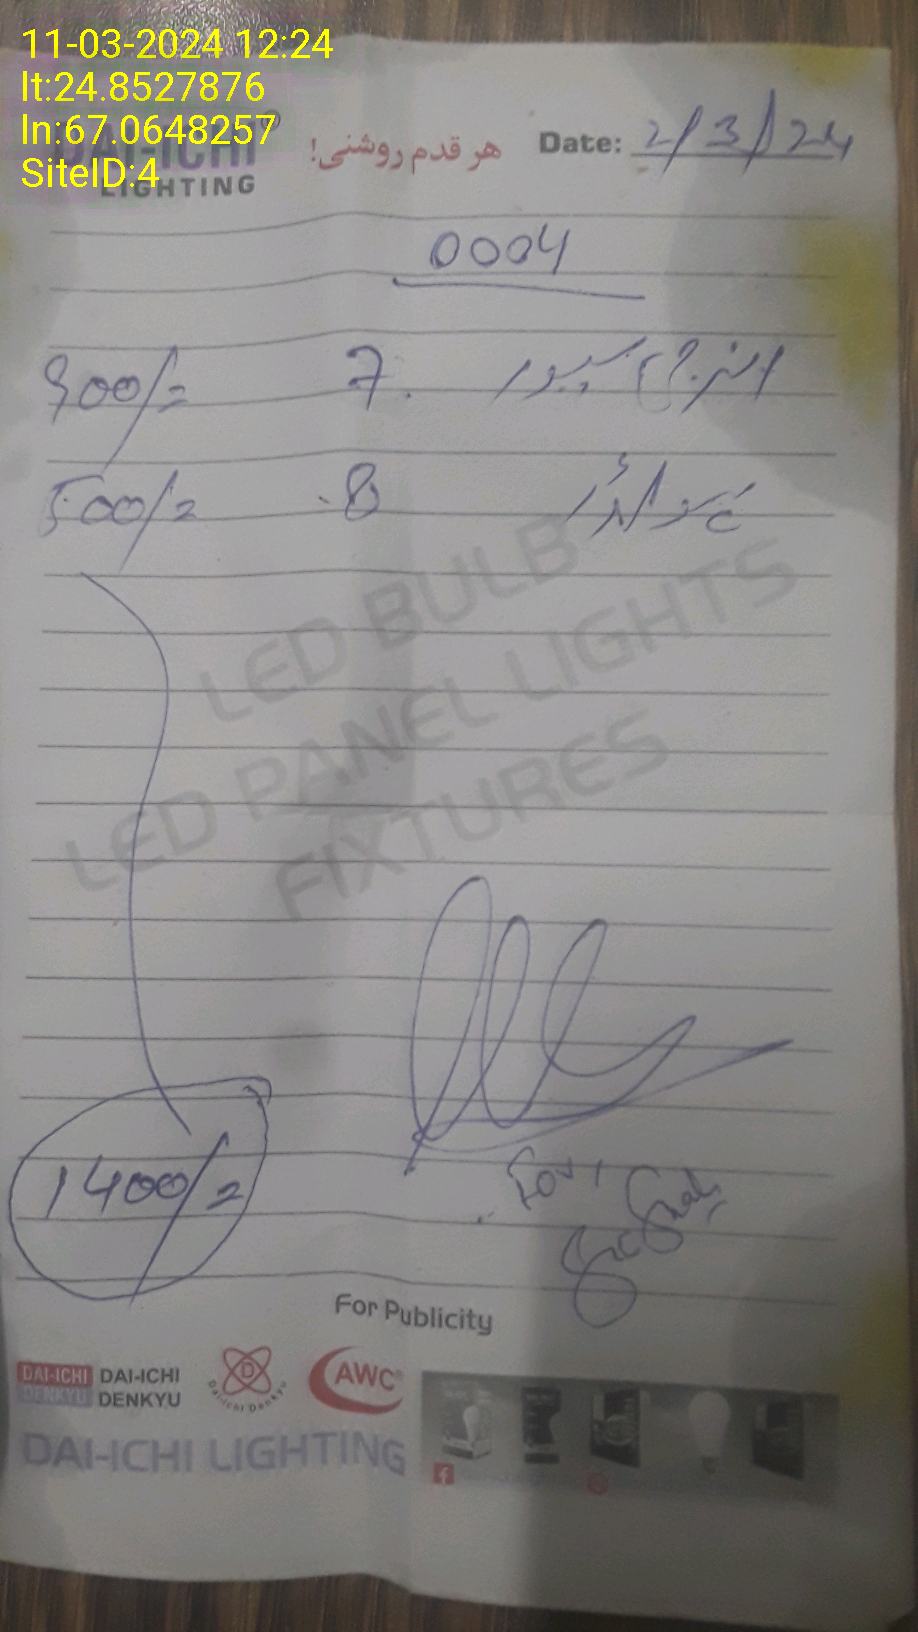 11-03-2024 12:24
lt:24.8527876
ln:67.0648257
SiteID:4
DAI-ICHI
LIGHTING
هر قدم روشنی!
Date: 2/3/24
0004
7 900/=
8 500/=
LED BULB
LED PANEL LIGHTS
FIXTURES
1400/=
For Publicity
DAI-ICHI DAI-ICHI
DENKYU DENKYU
D
Dai-ichi Denkyu
AWC
DAI-ICHI LIGHTING